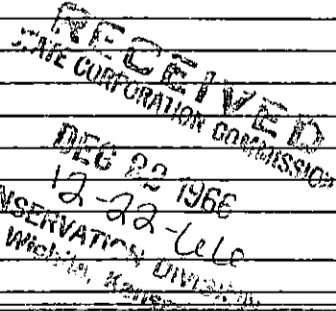 RECEIVED
STATE CORPORATION COMMISSION
DEC 22 1966
12-22-66
CONSERVATION DIVISION
Wichita, Kansas